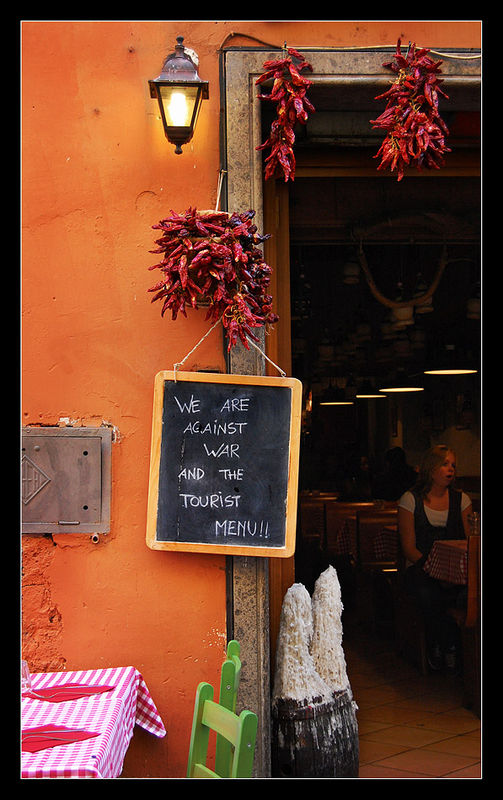 WE ARE
AGAINST
WAR
AND THE
TOURIST
MENU!!